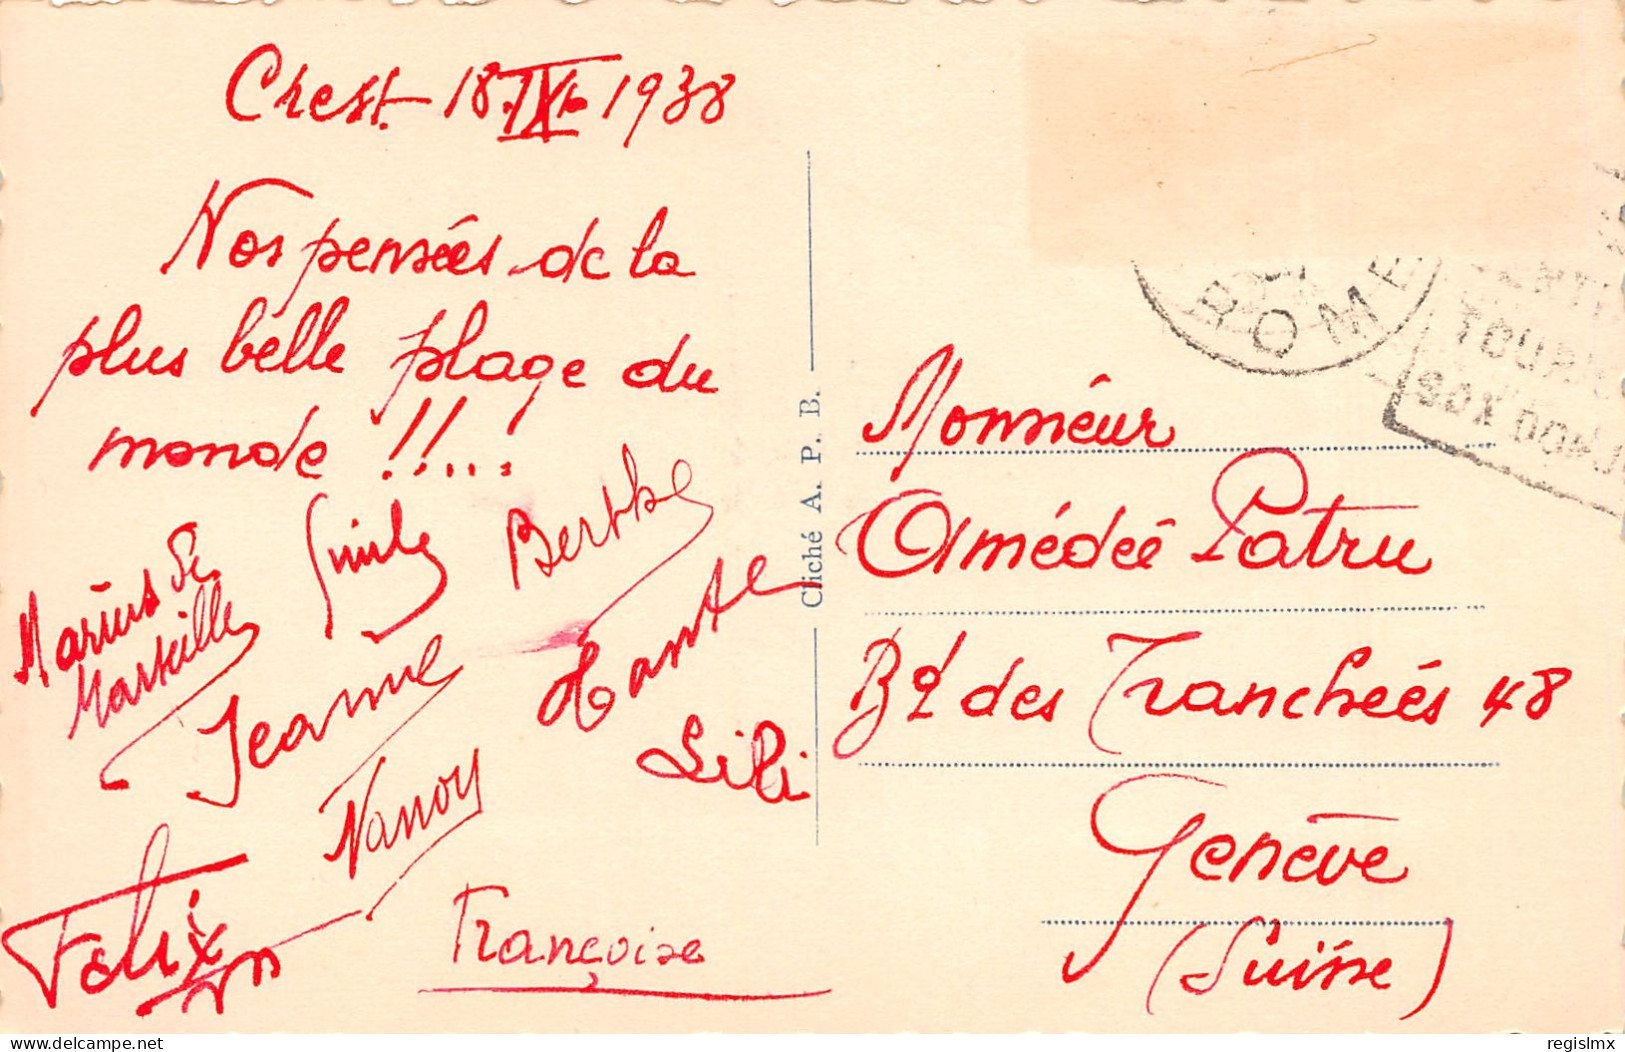 Chest. 18.IX. 1938
Nos pensées de la
plus belle plage du
monde !!...!
Marius de
Marseille
Emile
Berthe
Jeanne
Tante
Lili
Nanou
Felix
Françoise
Cliché A. P. B.
DROME
TOURIS
Monsieur
Amédée Patru
Bd des Tranchées 48
Genève
(Suisse)
delcampe.net
regislmx